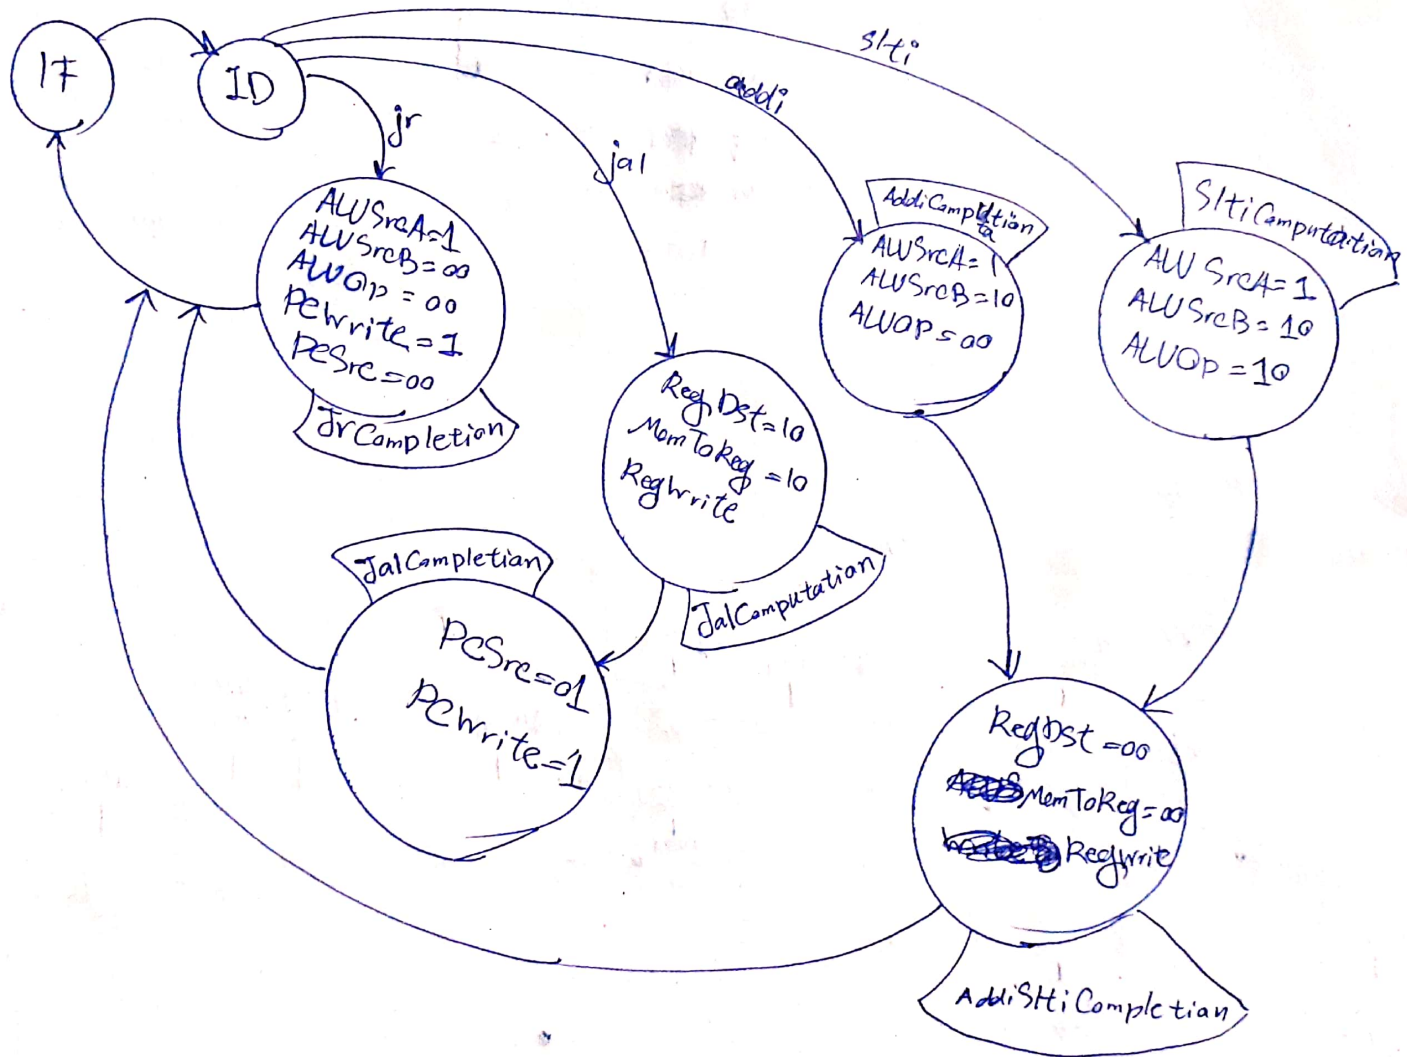 IF
ID
jr
jal
addi
slti
ALUSrcA=1
ALUSrcB=00
ALUOp=00
PCWrite=1
PCSrc=00
JrCompletion
RegDst=10
MemToReg=10
RegWrite
JalComputation
PCSrc=01
PCWrite=1
JalCompletion
AddiComputation
ALUSrcA=1
ALUSrcB=10
ALUOP=00
SltiComputation
ALUSrcA=1
ALUSrcB=10
ALUOp=10
RegDst=00
MemToReg=00
RegWrite
AddiSltiCompletion